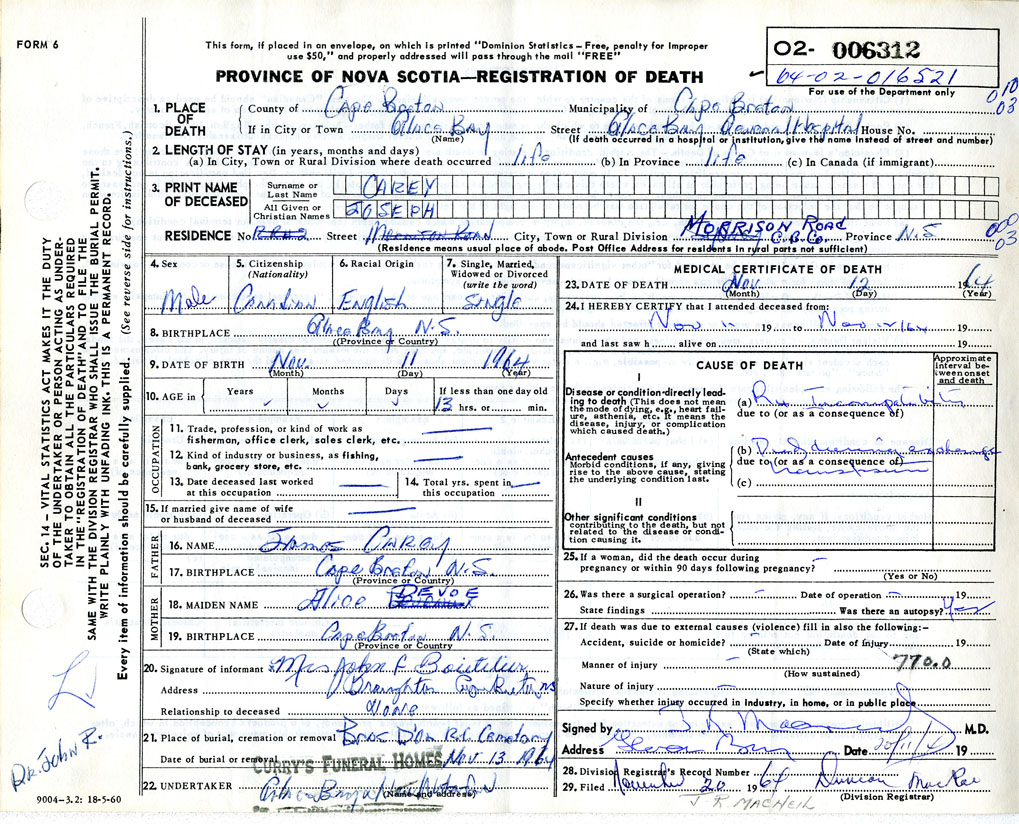 FORM 6
This form, if placed in an envelope, on which is printed "Dominion Statistics – Free, penalty for improper
use $50," and properly addressed will pass through the mail "FREE"
PROVINCE OF NOVA SCOTIA—REGISTRATION OF DEATH
02- 006312
64-02-016521
For use of the Department only
010
03
1. PLACE OF DEATH
County of Cape Breton Municipality of Cape Breton
If in City or Town Glace Bay Street Glace Bay General Hospital House No.
(Name) (If death occurred in a hospital or institution, give the name instead of street and number)
2. LENGTH OF STAY (in years, months and days)
(a) In City, Town or Rural Division where death occurred life (b) In Province life (c) In Canada (if immigrant)
3. PRINT NAME OF DECEASED
Surname or Last Name CAREY
All Given or Christian Names JOSEPH
RESIDENCE No. R.R#2 Street City, Town or Rural Division MORRISON ROAD C.B.Co. Province N.S
000
03
(Residence means usual place of abode. Post Office Address for residents in rural parts not sufficient)
4. Sex Male
5. Citizenship (Nationality) Canadian
6. Racial Origin English
7. Single, Married, Widowed or Divorced (write the word) Single
8. BIRTHPLACE Glace Bay N.S.
((Province or Country)
9. DATE OF BIRTH Nov. 11 1964
(Month) (Day) (Year)
10. AGE in Years Months Days If less than one day old
13 hrs. or min.
OCCUPATION
11. Trade, profession, or kind of work as
fisherman, office clerk, sales clerk, etc.
12. Kind of industry or business, as fishing,
bank, grocery store, etc.
13. Date deceased last worked
at this occupation
14. Total yrs. spent in
this occupation
15. If married give name of wife
or husband of deceased
FATHER
16. NAME James Carey
17. BIRTHPLACE Cape Breton N.S.
(Province or Country)
MOTHER
18. MAIDEN NAME Alice DEVOE
19. BIRTHPLACE Cape Breton N.S.
(Province or Country)
20. Signature of informant Mrs John F Boutilier
Address Broughton Cape Breton NS
Relationship to deceased None
21. Place of burial, cremation or removal Bras D'Or R.C. Cemetary
Date of burial or removal Nov 13 1964
CURRY'S FUNERAL HOMES
22. UNDERTAKER Glace Bay
(Name and address)
9004-3.2: 18-5-60
MEDICAL CERTIFICATE OF DEATH
23. DATE OF DEATH Nov. 12 1964
(Month) (Day) (Year)
24. I HEREBY CERTIFY that I attended deceased from:
Nov 11 19 to Nov 12/64 19
and last saw h alive on 19
CAUSE OF DEATH
Approximate interval between onset and death
I
Disease or condition directly leading to death (This does not mean the mode of dying, e.g., heart failure, asthenia, etc. It means the disease, injury, or complication which caused death.)
(a) Rh Incompatibility
due to (or as a consequence of)
Antecedent causes
Morbid conditions, if any, giving rise to the above cause, stating the underlying condition last.
(b) Died during exchange
due to (or as a consequence of)
transfusion
(c)
II
Other significant conditions
contributing to the death, but not related to the disease or condition causing it.
25. If a woman, did the death occur during
pregnancy or within 90 days following pregnancy?
(Yes or No)
26. Was there a surgical operation? Date of operation 19
State findings Was there an autopsy? Yes
27. If death was due to external causes (violence) fill in also the following:–
Accident, suicide or homicide? Date of injury 19
(State which)
Manner of injury 770.0
(How sustained)
Nature of injury
Specify whether injury occurred in industry, in home, or in public place
Signed by M.D.
Address Glace Bay Date 20/11/64 19
28. Division Registrar's Record Number
29. Filed November 20 1964 Duncan MacRae
(Division Registrar)
J R MACNEIL
SEC. 14 – VITAL STATISTICS ACT MAKES IT THE DUTY
OF THE UNDERTAKER OR PERSON ACTING AS UNDER-
TAKER TO OBTAIN ALL THE PARTICULARS REQUIRED
IN THE "REGISTRATION OF DEATH" AND TO FILE THE
SAME WITH THE DIVISION REGISTRAR WHO SHALL ISSUE THE BURIAL PERMIT.
WRITE PLAINLY WITH UNFADING INK. THIS IS A PERMANENT RECORD.
Every item of information should be carefully supplied. (See reverse side for instructions.)
Dr. John R.